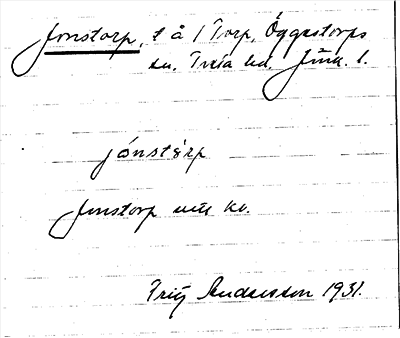 Jonstorp, t å 1 Torp, Öggestorps
sn. Tveta hd. Jönk. l.
jónstärp
Jonstorp utt kv.
Fritz Andersson 1931.